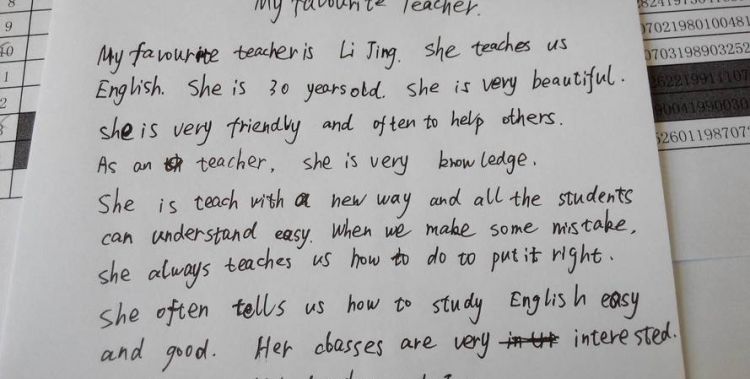 My favourite Teacher.
My favourite teacher is Li Jing. she teaches us
English. She is 30 years old. she is very beautiful.
she is very friendly and often to help others.
As an teacher, she is very knowledge.
She is teach with a new way and all the students
can understand easy. When we make some mistake,
she always teaches us how to do to put it right.
she often tells us how to study English easy
and good. Her classes are very interested.
8
9
10
1
2
07021980100481
0703198903252
3622199111107
90041990030
52601198707